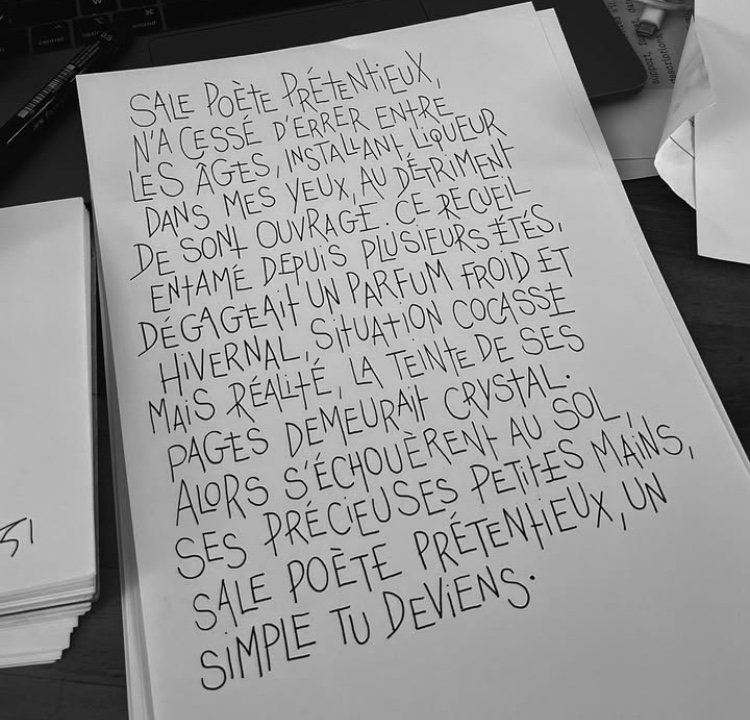 SALE POÈTE PRÉTENTIEUX,
N'A CESSÉ D'ERRER ENTRE
LES ÂGES, INSTALLANT LIQUEUR
DANS MES YEUX, AU DÉTRIMENT
DE SONT OUVRAGE. CE RECUEIL
ENTAMÉ DEPUIS PLUSIEURS ÉTÉS,
DÉGAGEAIT UN PARFUM FROID ET
HIVERNAL, SITUATION COCASSE
MAIS RÉALITÉ, LA TEINTE DE SES
PAGES DEMEURAIT CRYSTAL.
ALORS S'ÉCHOUÈRENT AU SOL,
SES PRÉCIEUSES PETITES MAINS,
SALE POÈTE PRÉTENTIEUX, UN
SIMPLE TU DEVIENS.